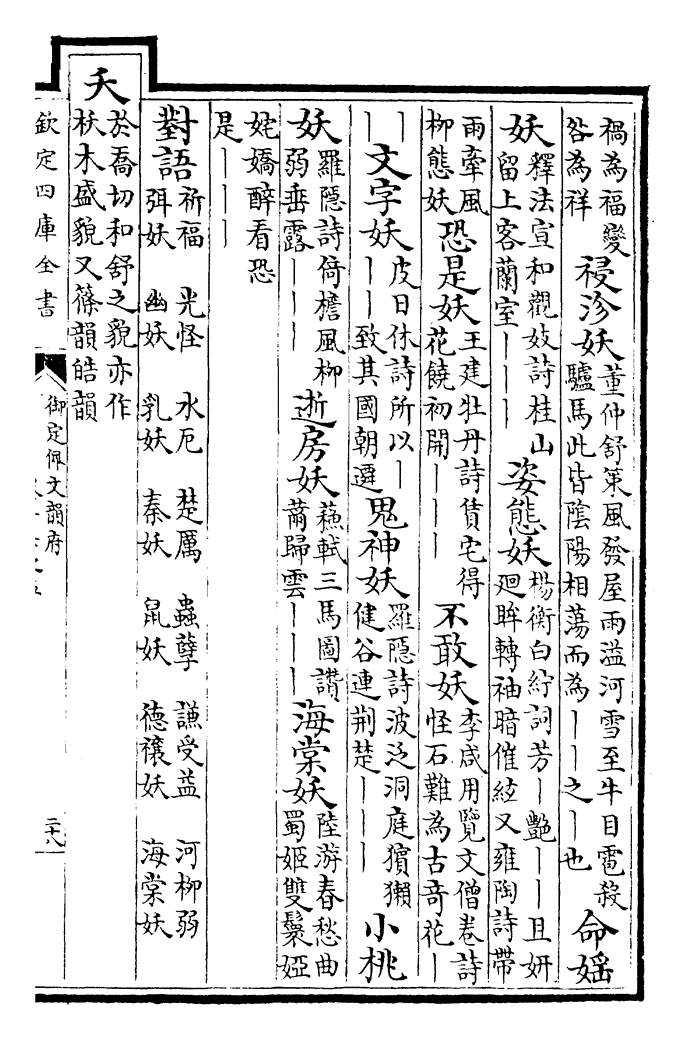 禍為福變
咎為祥
祲沴妖
董仲舒策風發屋雨溢河雪至牛目雹殺
驢馬此皆陰陽相蕩而為丨丨之丨也
命媱
妖
釋法宣和觀妓詩桂山
留上客蘭室丨丨丨
姿態妖
楊衡白紵詞芳丨艷丨丨且妍
廻眸轉袖暗催絃又雍陶詩帶
雨牽風
柳態妖
恐是妖
王建牡丹詩賃宅得
花饒初開丨丨丨
不敢妖
李咸用覽文僧卷詩
怪石難為古奇花丨
丨
丨
文字妖
皮日休詩所以丨
丨丨致其國朝遷
鬼神妖
羅隱詩波泛洞庭獱獺
健谷連荆楚丨丨丨
小桃
妖
羅隱詩倚檐風柳
弱垂露丨丨丨
逝房妖
蘇軾三馬圖讃
薾歸雲丨丨丨
海棠妖
陸游春愁曲
蜀姬雙鬟婭
姹嬌醉看恐
是丨丨丨
對語
祈福 光怪 水厄 楚厲 蟲孽 謙受益 河柳弱
弭妖 幽妖 乳妖 秦妖 鼠妖 德禳妖 海棠妖
夭
於喬切和舒之貌亦作
枖木盛貌又篠韻皓韻
欽定四庫全書
御定佩文韻府
二十八